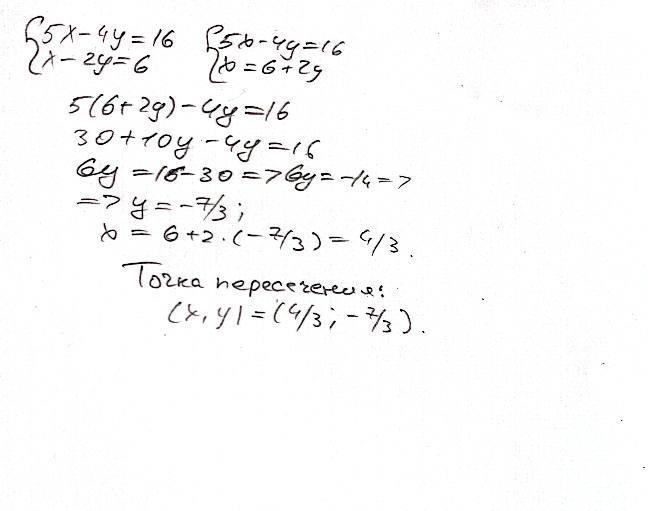 {5x-4y=16 {5x-4y=16
{x-2y=6 {x=6+2y
5(6+2y)-4y=16
30+10y-4y=16
6y=16-30=>6y=-14=>
=>y=-7/3;
x=6+2·(-7/3)=4/3.
Точка пересечения:
(x,y)=(4/3;-7/3).